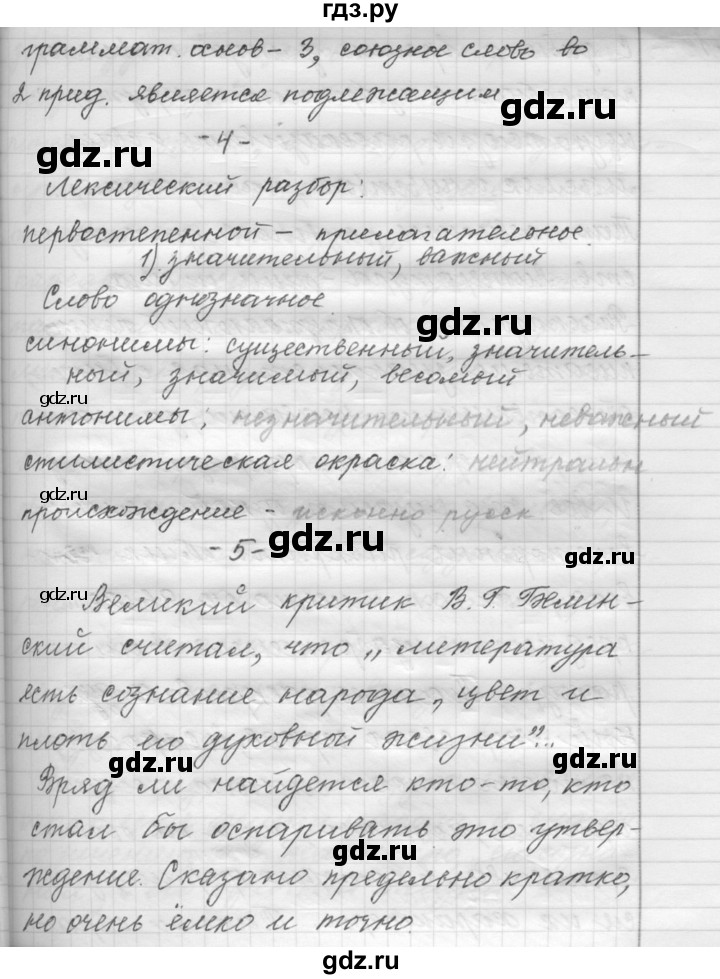 гдз.ру
граммат. основ - 3, союзное слово во
2 прид. является подлежащим
gdz.ru
gdz.ru
- 4 -
Лексический разбор:
первостепенной - прилагательное.
1) значительный, важный
gdz.ru
Слово однозначное
gdz.ru
синонимы: существенный, значитель-
ный, значимый, весомый
антонимы: незначительный, неважный
стилистическая окраска: нейтральн
gdz.ru
происхождение - исконно русск
- 5 -
gdz.ru
gdz.ru
gdz.ru
Великий критик В. Г. Белин-
ский считал, что „литература
есть сознание народа, цвет и
плоть его духовной жизни"..
gdz.ru
gdz.ru
Вряд ли найдется кто-то, кто
стал бы оспаривать это утвер-
gdz.ru
ждение. Сказано предельно кратко,
но очень ёмко и точно.
gdz.ru
gdz.ru